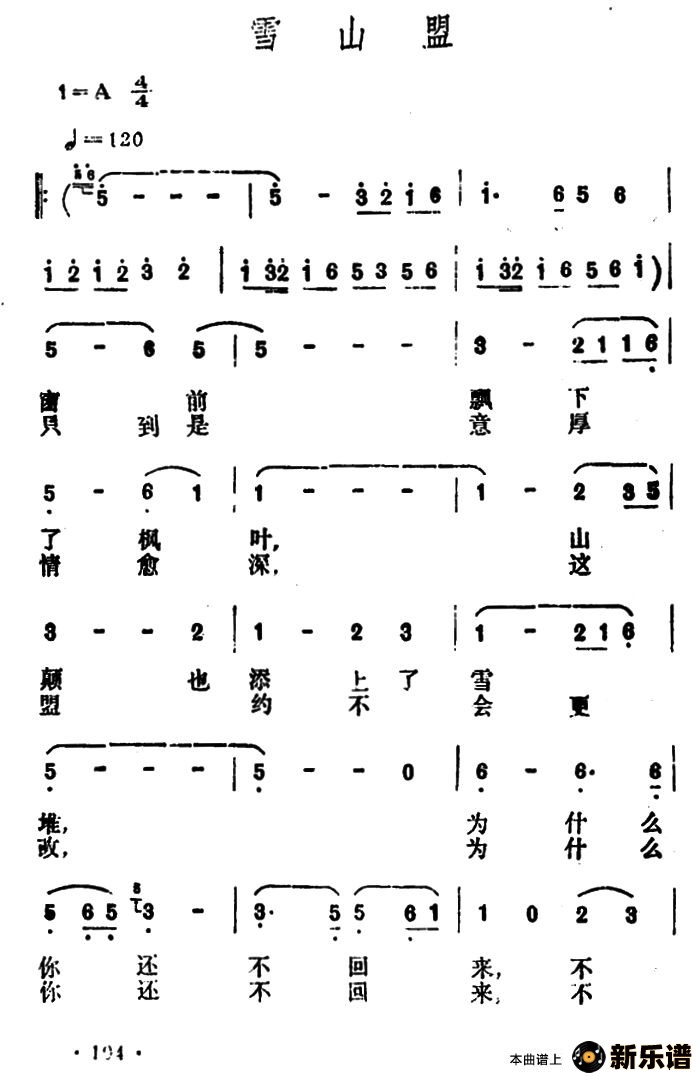 雪山盟
1=A 4/4
♩=120
56 5 - - - | 5 - 32 16 | 1· 6 5 6 |
12 12 3 2 | 132 16 53 56 | 132 16 56 1 ) |
5 - 6 5 | 5 - - - | 3 - 21 16 |
窗 前 飘 下
只 到 是 意 厚
5 - 6 1 | 1 - - - | 1 - 2 35 |
了 枫 叶, 山
情 愈 深, 这
3 - - 2 | 1 - 2 3 | 1 - 21 6 |
颠 也 添 上 了 雪
盟 约 不 会 更
5 - - - | 5 - - 0 | 6 - 6· 6 |
堆, 为 什 么
改, 为 什 么
5 65 5 3 - | 3· 5 5 61 | 1 0 2 3 |
你 还 不 回 来, 不
你 还 不 回 来, 不
·194·
本曲谱上 新乐谱